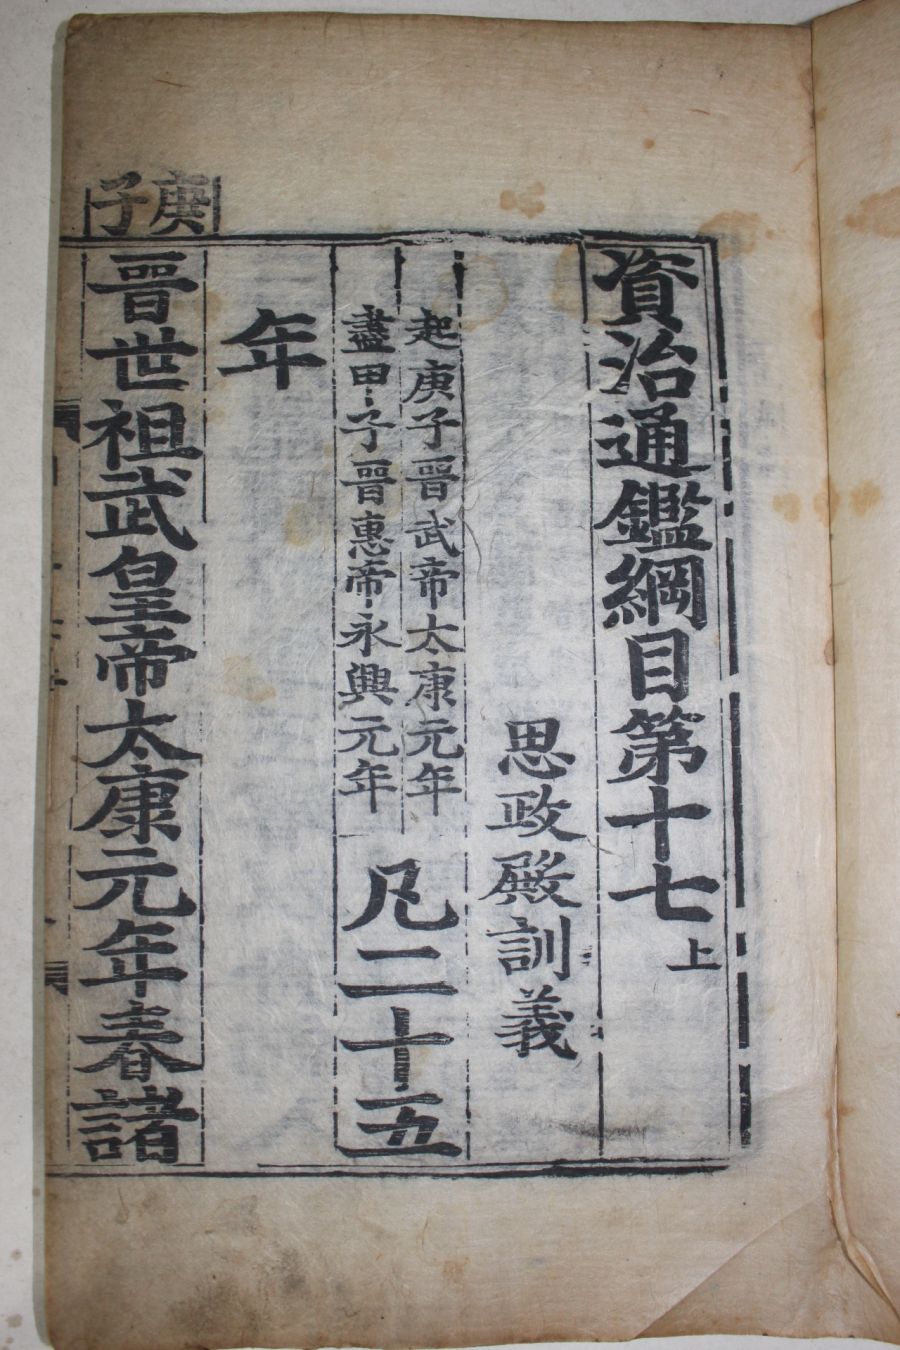 資治通鑑綱目第十七上
思政殿訓義
起庚子晉武帝太康元年
盡甲子晉惠帝永興元年
凡二十五
年
庚子
晉世祖武皇帝太康元年春諸